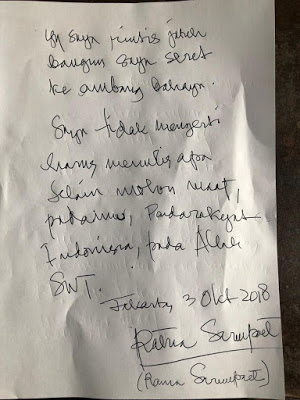 yg saya rintis jatuh
bangun saya seret
ke ambang bahaya.
Saya tidak mengerti
harus menulis apa
selain mohon maaf,
padamu, Pada rakyat
Indonesia, pada Allah
SWT.
Jakarta, 3 Okt 2018
Ratna Sarumpaet
(Ratna Sarumpaet)